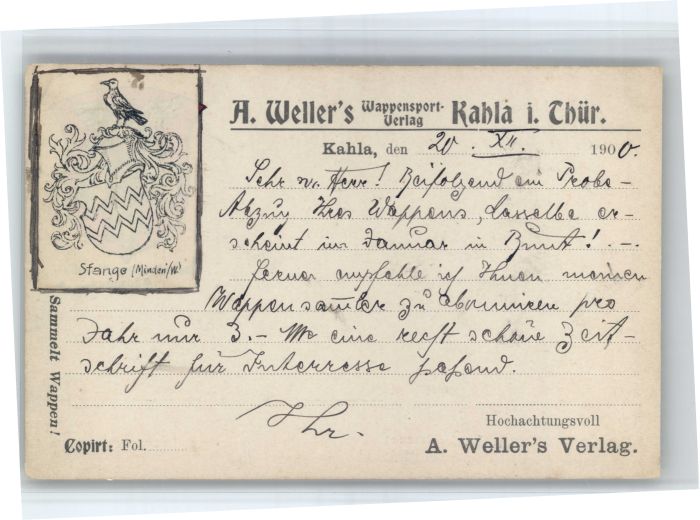 A. Weller's Wappensport-Verlag Kahla i. Thür.
Kahla, den 20. XII. 1900.
Sehr w. Herr! Beifolgend ein Probe-
Abzug Ihres Wappens, dasselbe er-
scheint im Januar in Bunt! . -.
ferner empfehle ich Ihnen meinen
Wappensamler zu abonniren pro
Jahr nur 3.- M eine recht schöne Zeit-
schrift für Interresse passend.
Ihr.
Hochachtungsvoll
A. Weller's Verlag.
Copirt: Fol.
Stange (Minden/W.)
Sammelt Wappen!